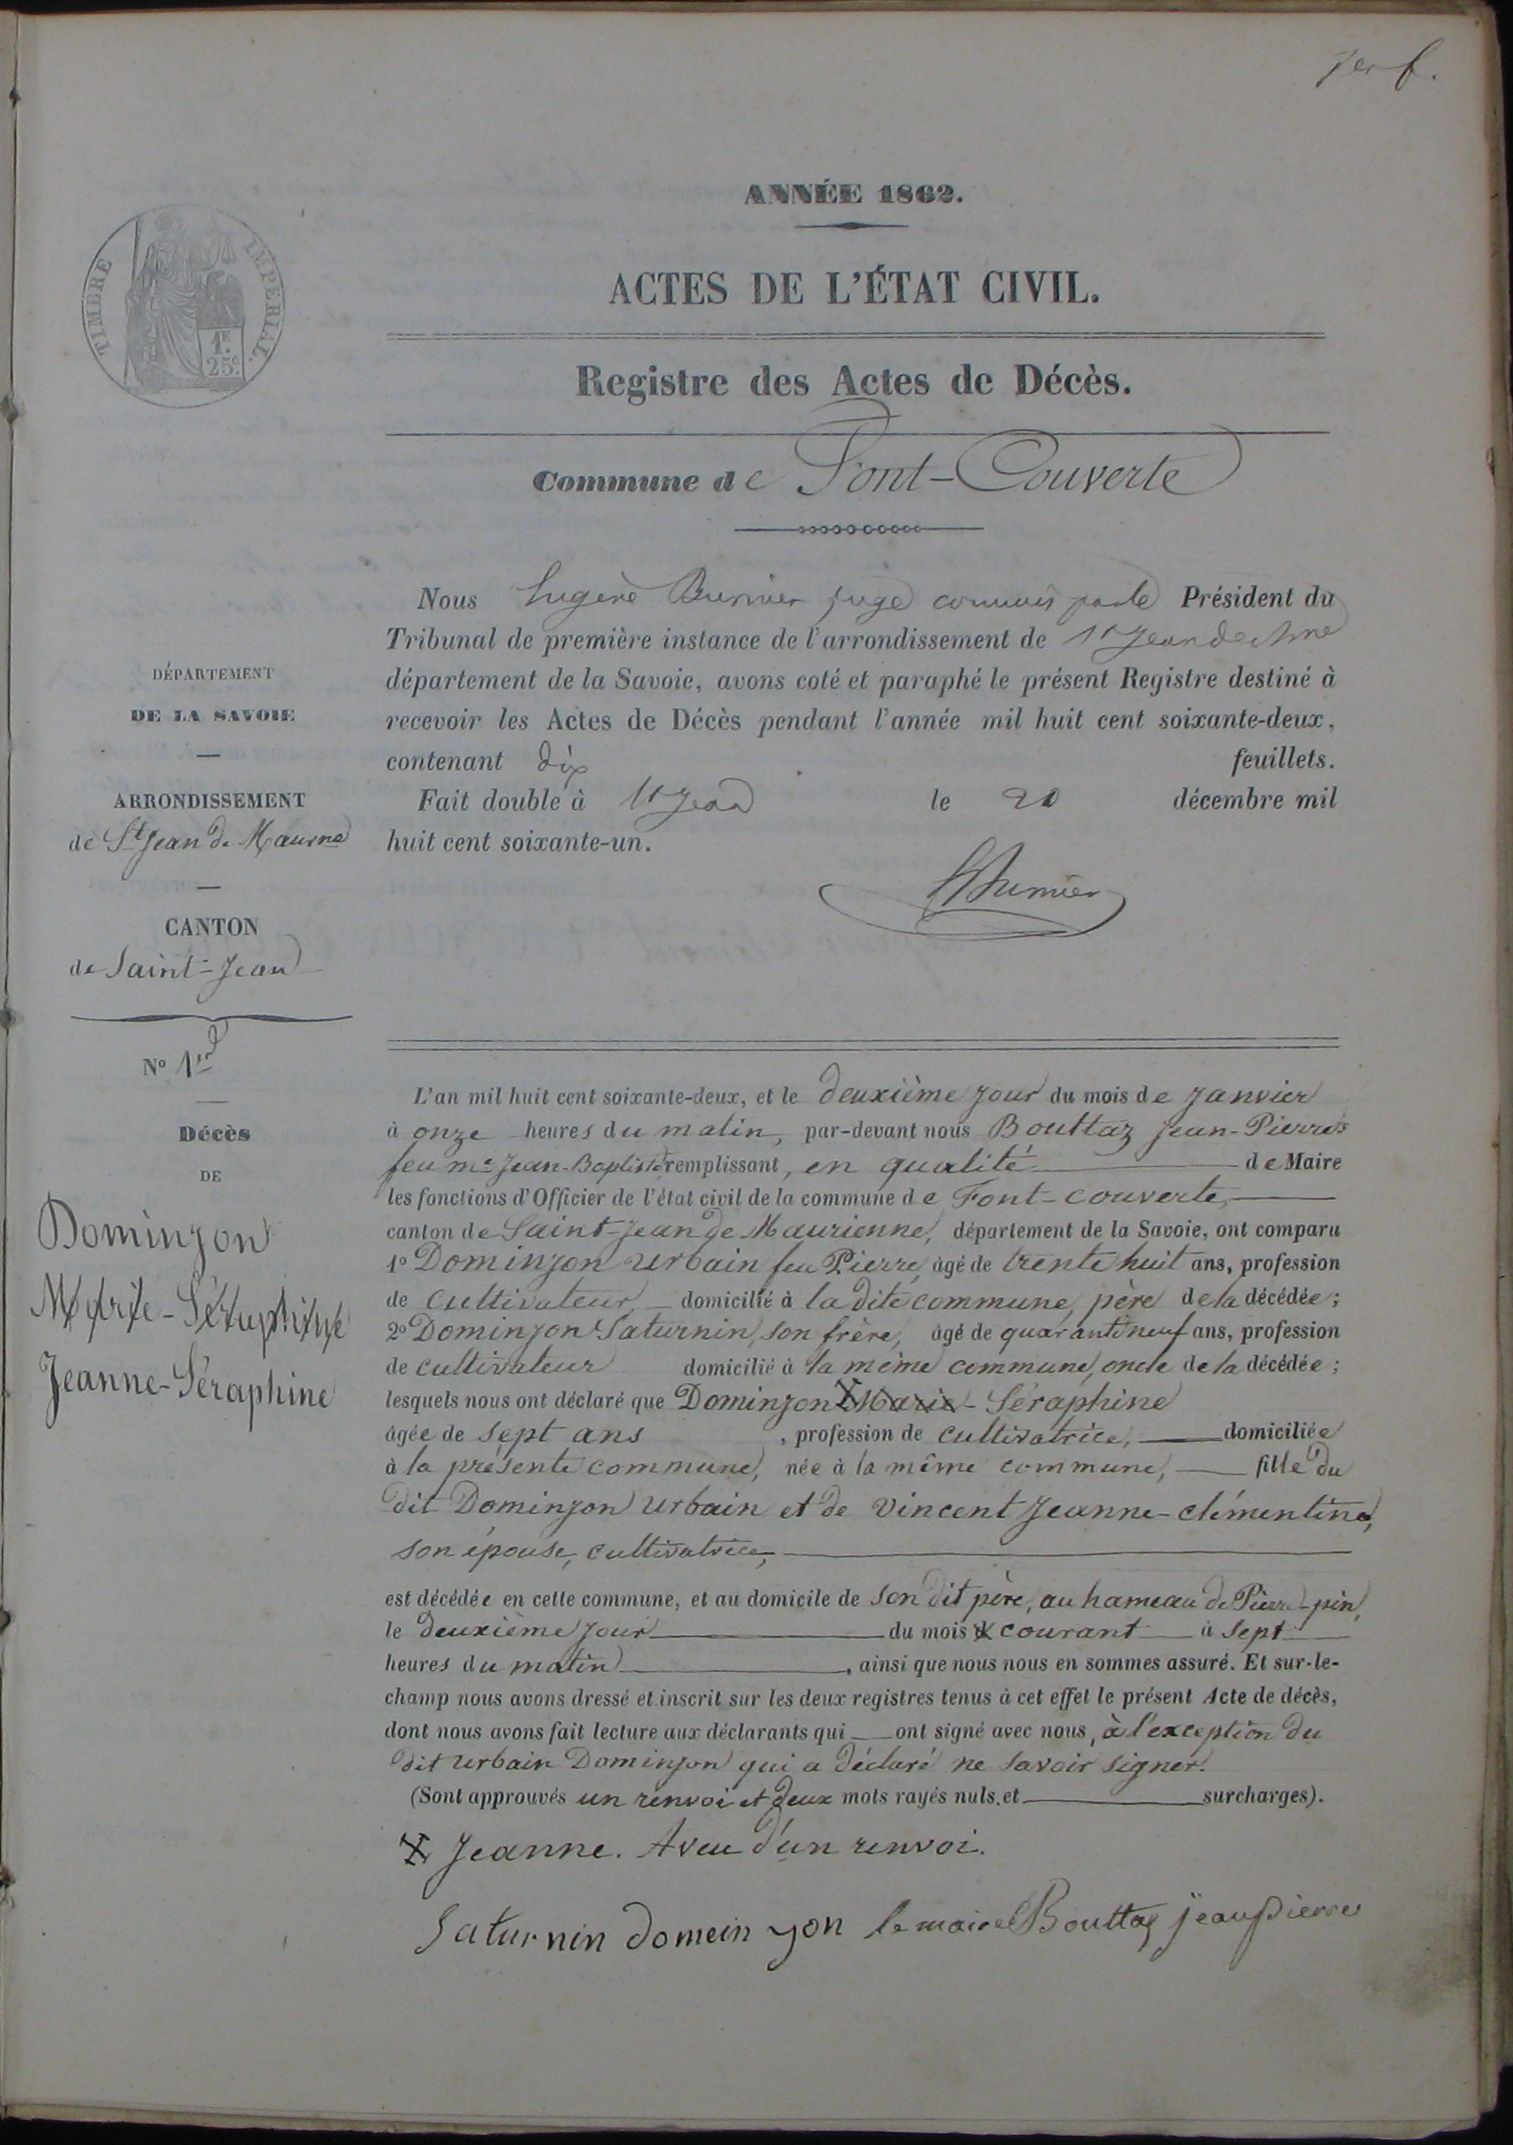 1er f.
ANNÉE 1862.
TIMBRE IMPERIAL.
1F.
25c.
ACTES DE L'ÉTAT CIVIL.
Registre des Actes de Décès.
Commune de Font-Couverte
Nous Eugène Burnier juge commis par le Président du
Tribunal de première instance de l'arrondissement de St Jean de Mne
département de la Savoie, avons coté et paraphé le présent Registre destiné à
recevoir les Actes de Décès pendant l'année mil huit cent soixante-deux,
contenant dix feuillets.
Fait double à St Jean le 20 décembre mil
huit cent soixante-un.
Burnier
DÉPARTEMENT
DE LA SAVOIE
ARRONDISSEMENT
de St Jean de Maurne
CANTON
de Saint-Jean
No 1er
Décès
DE
Dominjon
Marie-Séraphine
Jeanne-Séraphine
L'an mil huit cent soixante-deux, et le deuxième jour du mois de janvier
à onze heures du matin, par-devant nous Bouttaz Jean-Pierre
feu me Jean-Baptiste remplissant, en qualité de Maire
les fonctions d'Officier de l'état civil de la commune de Font-couverte,
canton de Saint-Jean de Maurienne, département de la Savoie, ont comparu
1o Dominjon Urbain feu Pierre, âgé de trente huit ans, profession
de cultivateur domicilié à la dite commune, père de la décédée;
2o Dominjon Saturnin, son frère, âgé de quarante neuf ans, profession
de cultivateur domicilié à la même commune, oncle de la décédée;
lesquels nous ont déclaré que Dominjon X Marie-Séraphine
âgée de sept ans, profession de cultivatrice, domiciliée
à la présente commune, née à la même commune, fille du
dit Dominjon Urbain et de Vincent Jeanne-Clémentine,
son épouse, cultivatrice,
est décédée en cette commune, et au domicile de son dit père, au hameau de Pierre-pin,
le deuxième jour du mois d courant à sept
heures du matin, ainsi que nous nous en sommes assuré. Et sur-le-
champ nous avons dressé et inscrit sur les deux registres tenus à cet effet le présent Acte de décès,
dont nous avons fait lecture aux déclarants qui ont signé avec nous, à l'exception du
dit Urbain Dominjon qui a déclaré ne savoir signer.
(Sont approuvés un renvoi et deux mots rayés nuls, et surcharges).
X Jeanne. Aveu d'un renvoi.
Saturnin domein yon le maire Bouttaz jean pierre